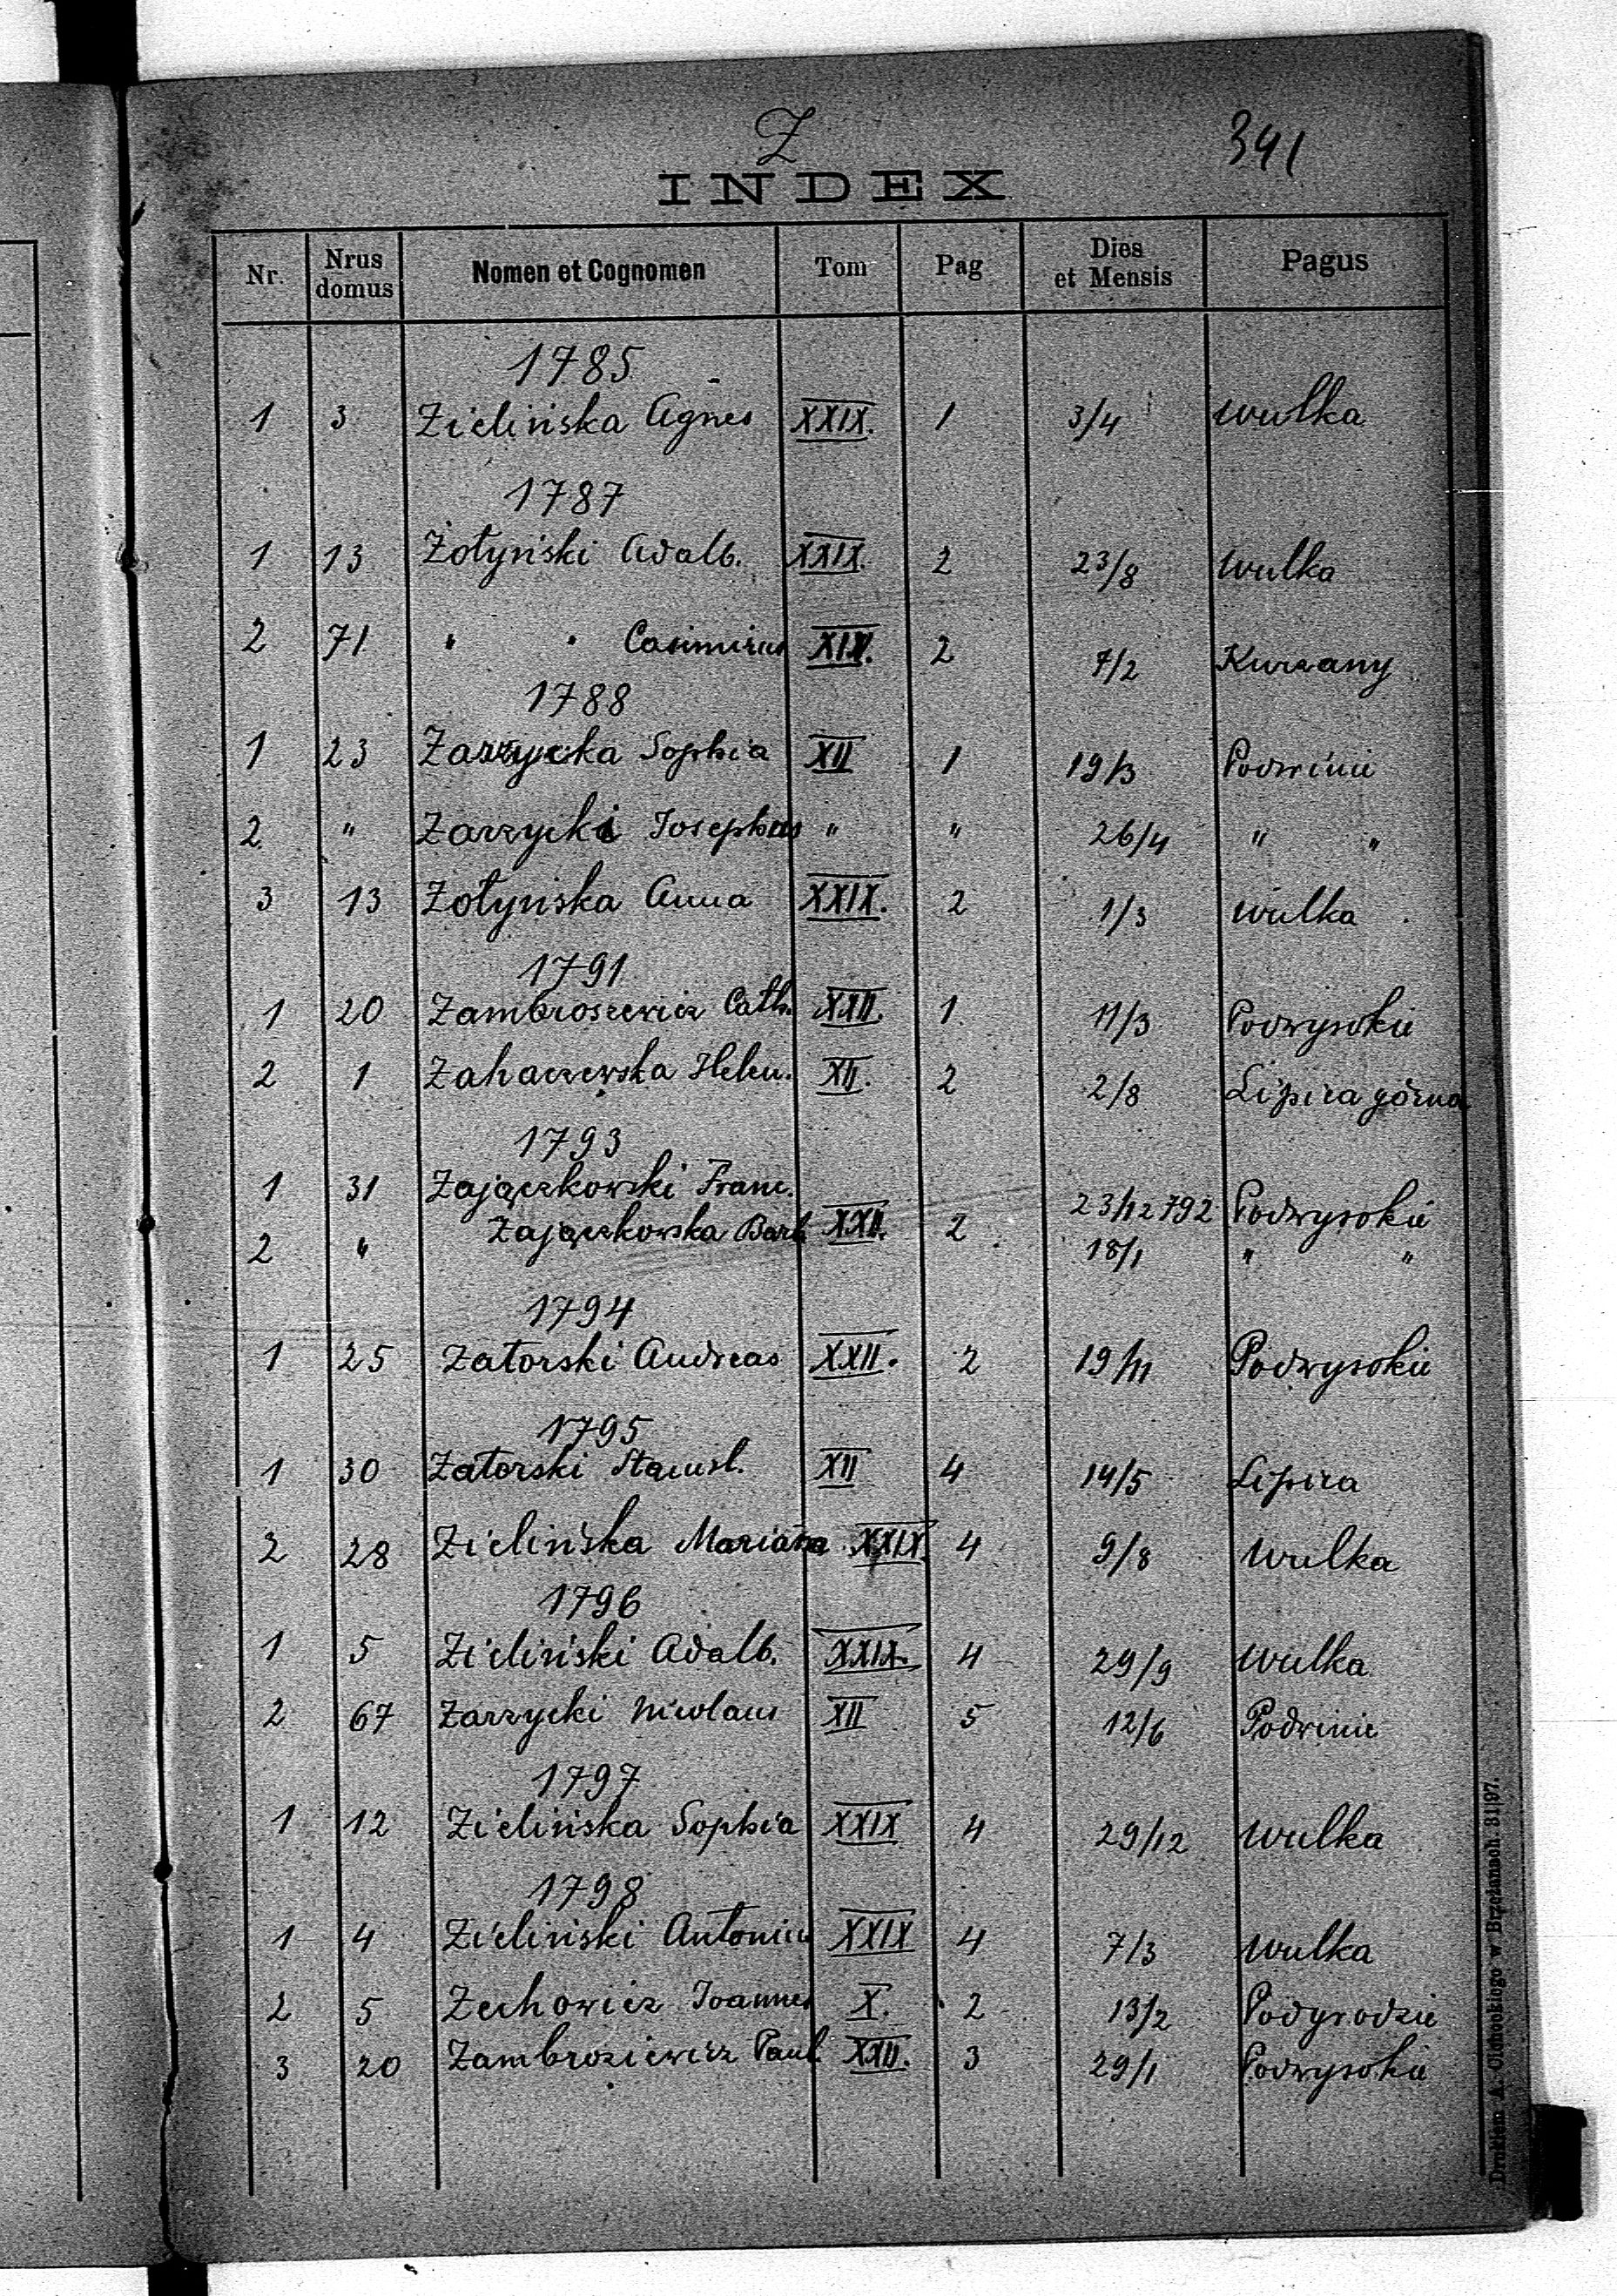 Z
341
INDEX
Nr. Nrus domus Nomen et Cognomen Tom Pag Dies et Mensis Pagus
1785
1 3 Zielińska Agnes XXIX. 1 3/4 Wulka
1787
1 13 Żołyński Adalb. XXIX. 2 23/8 Wulka
2 71 " " Casimirus XIX. 2 7/2 Kurzany
1788
1 23 Zarzycka Sophia XII 1 19/3 Podwinie
2 " Zarzycki Josephus " " 26/4 " "
3 13 Żołyńska Anna XXIX. 2 1/3 Wulka
1791
1 20 Zambroszewicz Cath. XXII. 1 11/3 Podwysokie
2 1 Zahaczewska Helen. XII. 2 2/8 Lipica górna
1793
1 31 Zajączkowski Franc. 23/12 792 Podwysokie
2 " Zajączkowska Barb. XXII. 2 18/1 " "
1794
1 25 Zatorski Andreas XXII. 2 19/11 Podwysokie
1795
1 30 Zatorski Stanisl. XII 4 14/5 Lipica
2 28 Zielińska Mariana XXIX. 4 9/8 Wulka
1796
1 5 Zieliński Adalb. XXIX. 4 29/9 Wulka
2 67 Zarzycki Nicolaus XII 5 12/6 Podwinie
1797
1 12 Zielińska Sophia XXIX 4 29/12 Wulka
1798
1 4 Zieliński Antonius XXIX 4 7/3 Wulka
2 5 Zechowicz Joannes X. 2 13/2 Podgrodzie
3 20 Zambroziewicz Paul. XXII. 3 29/1 Podwysokie
Drukiem A. w Brzeżanach 31|97.